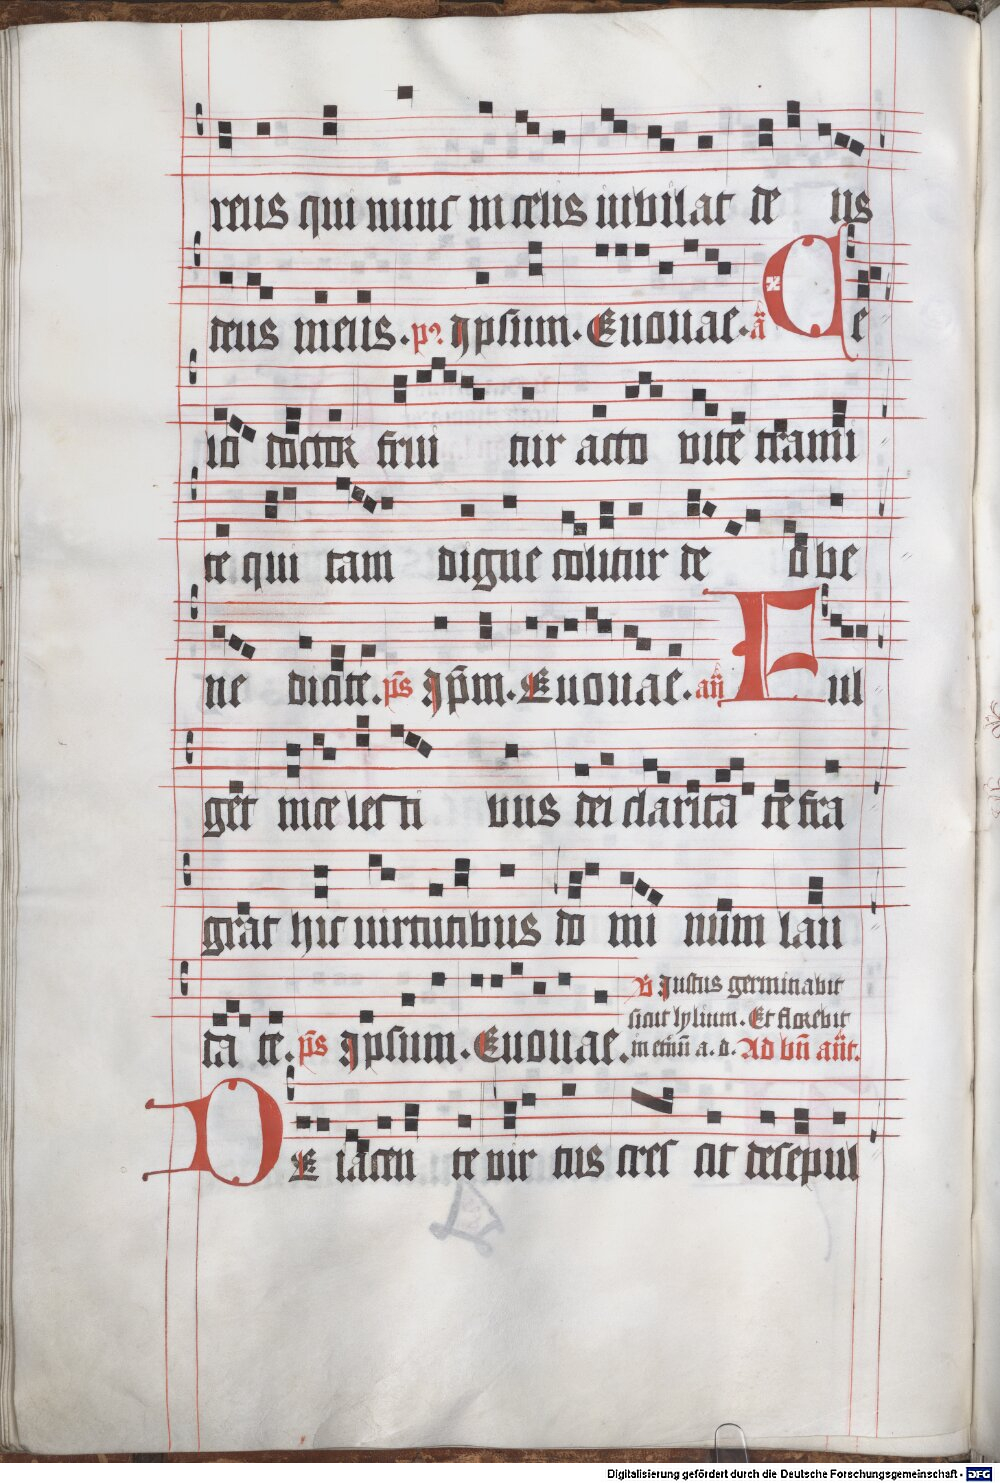 reus qui nunc in celis iubilat de us
deus meus. ps Ipsum. Euouae. añ Ce
lo doctor frui tur acto vite trami
te qui tam digne colitur te o be
ne dicite. ps̄ Ip̄m. Euouae. añ Ful
get in ce lesti bus dei clarita te fra
grat hic uirtutibus do mi num lau
da te. ps̄ Ipsum. Euouae. v̄ Justus germinabit
sicut lylium. Et florebit
in etern̄ a. d. Ad bn̄ ant.
DE iacen te vir tus cres cit de sepul
Digitalisierung gefördert durch die Deutsche Forschungsgemeinschaft - DFG